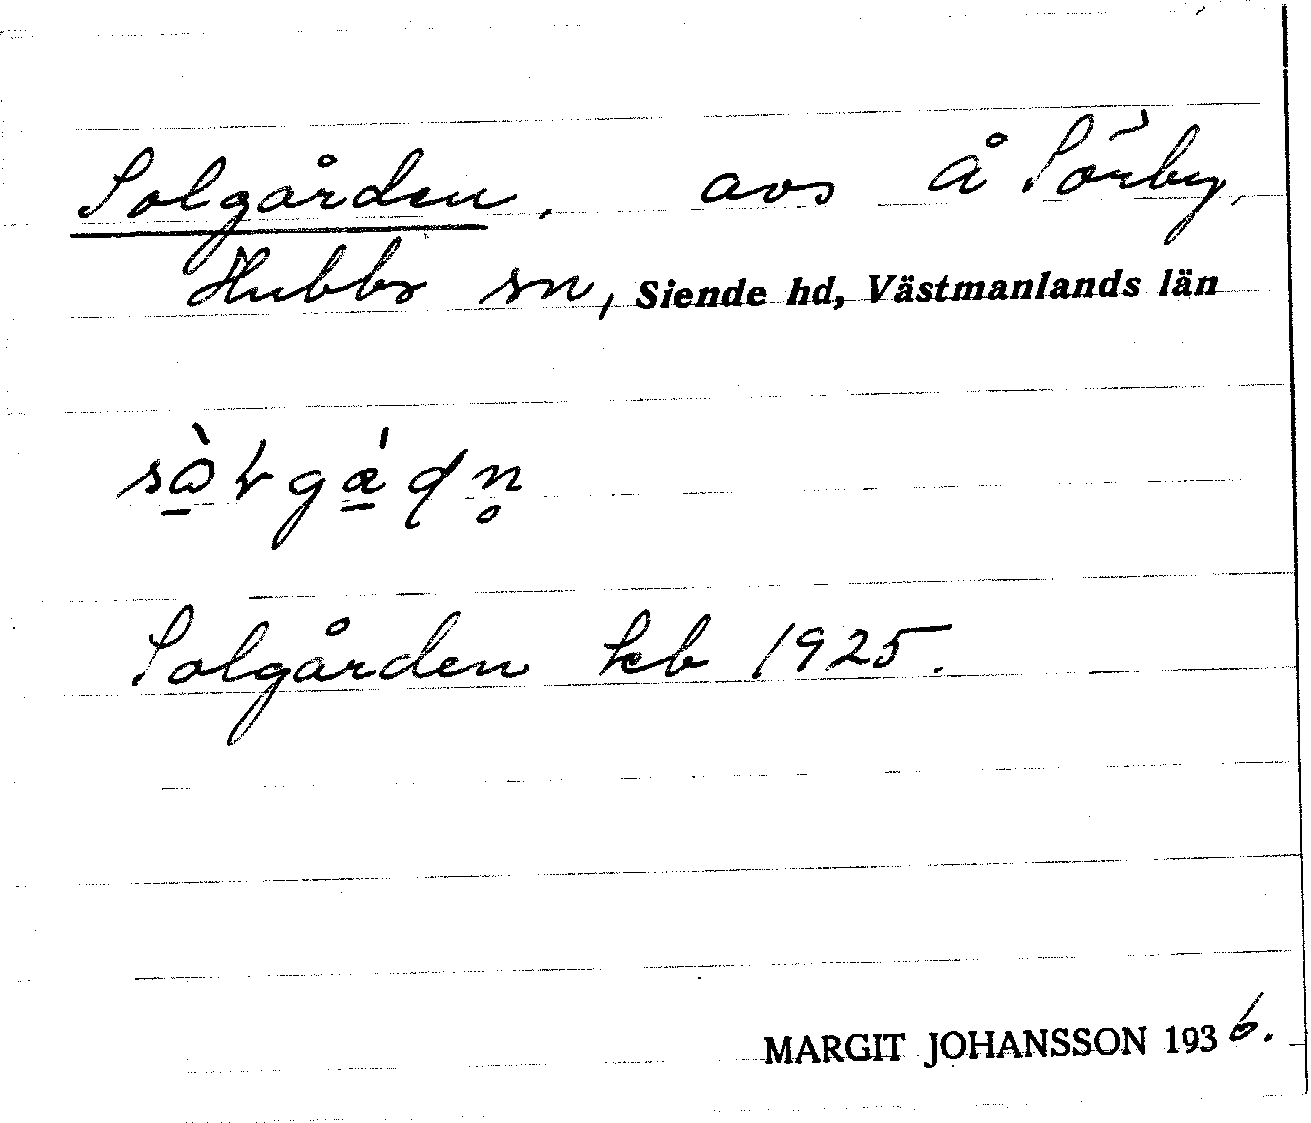 Solgården. avs å Sörby,
Hubbo sn, Siende hd, Västmanlands län
Solgården kb 1925.
MARGIT JOHANSSON 1936.